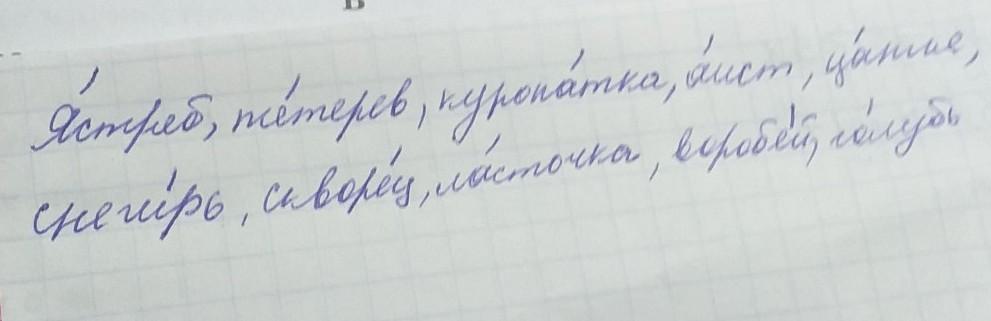 В
Я́стреб, те́терев, куропа́тка, а́ист, ца́пля,
снеги́рь, скворе́ц, ла́сточка, воробе́й, го́лубь